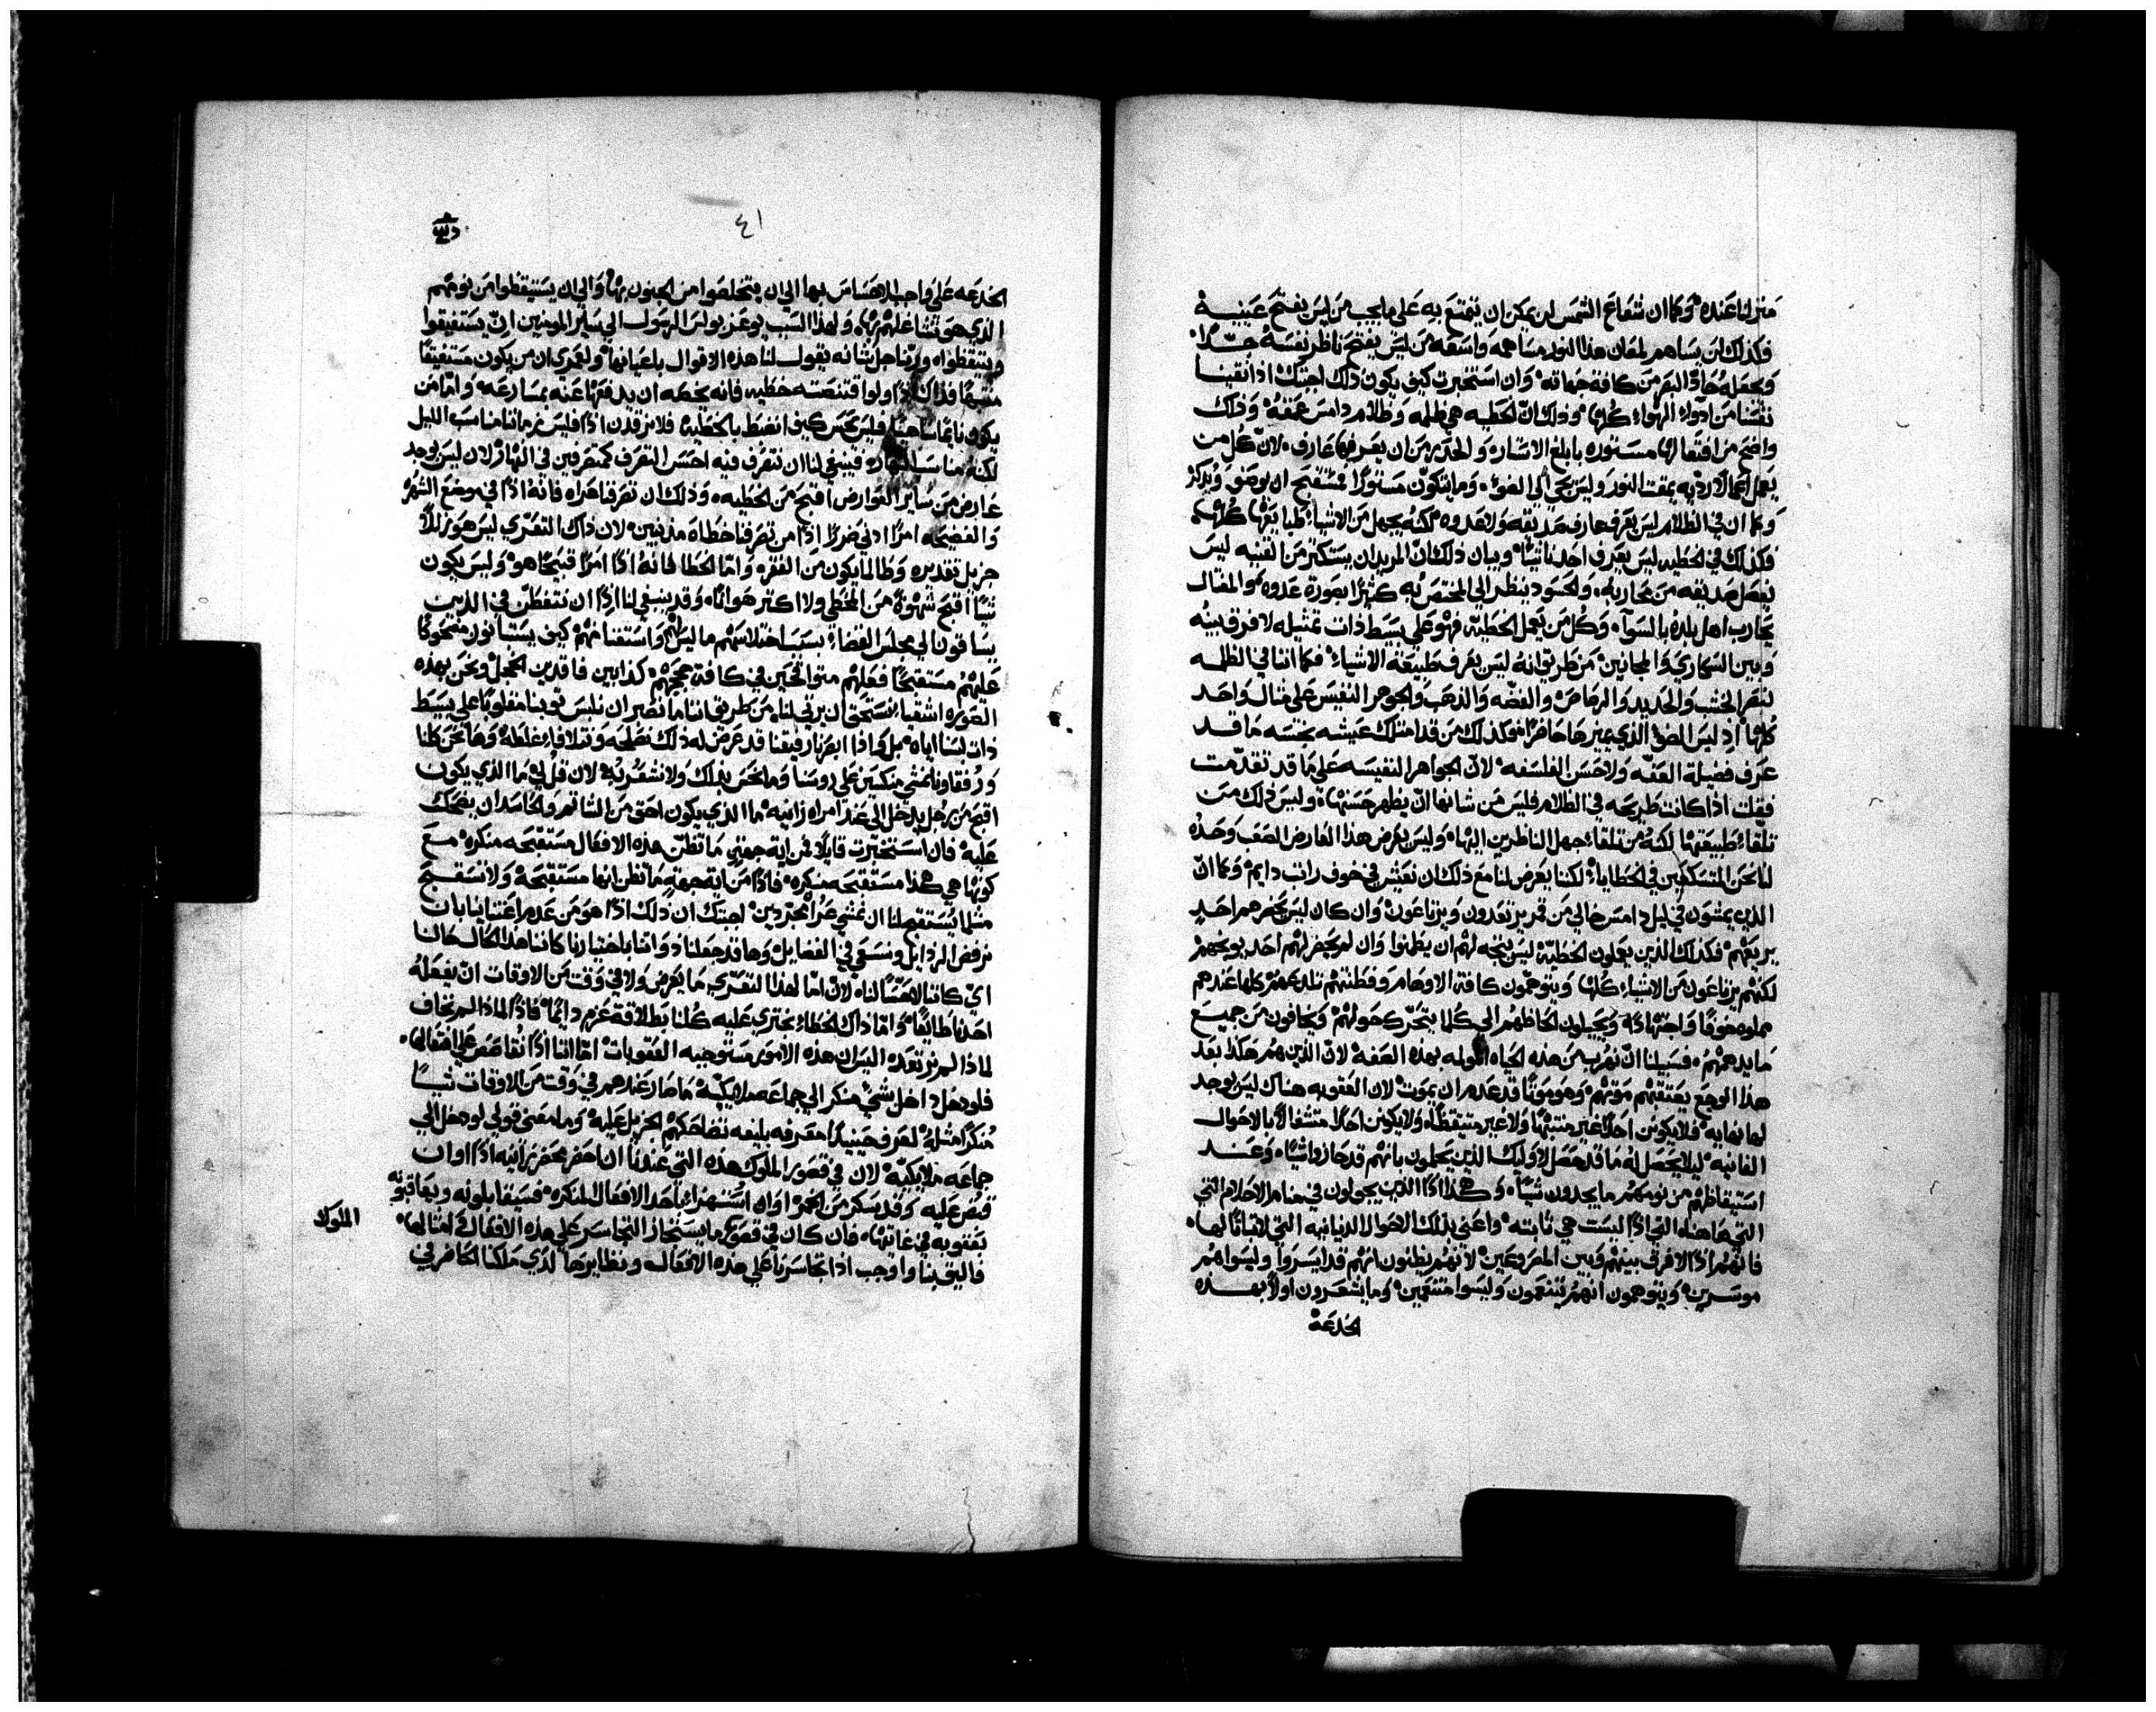 منزلنا عنده وكما ان شعاع الشمس لن يمكن ان يتمتع به على ما يجب من ليس يفتح عينيه
فكذلك لن يساهم لمعان هذا النور مساهمه واسعه من ليس يفتح ناظر نفسه جدًا
ويجعله حاد البصر من كافة جهاته وان استخبرت كيف يكون ذلك اجبتك اذا نقينا
نفسنا من ادواء الهواء كلها وذلك ان الخطيه هي ظلمه وظلام دامس عمقه وذلك
واضح من افتعالها مستوره بابلغ الاستاره والحذر من ان يعرفها عارف لان كل من
يعمل اعمالا رديه يمقت النور وليس يجي الى الضوء وما يتكون مستورًا فمستقبح ان يوصف ويذكر
وكما ان في الظلام ليس يعرف عارف صديقه ولا عدوه لكنه يجهل من الاشياء طبايعها كلها
فكذلك في الخطيه ليس يعرف احدنا شيًا وبيان ذلك ان المريد ان يستكثر من القنيه ليس
يفصل صديقه من محاربه والحسود ينظر الي المختص به كثيرًا بصورة عدوه والمغتال
يحارب اهل بلده بالسواء وكل من يعمل الخطيه فهو على بسيط ذات تمثيله لا فرق بينه
وبين السكارى والمجانين من طريق انه ليس يعرف طبيعة الاشياء فكما اننا في الظلمه
نبصر الخشب والحديد والرصاص والفضه والذهب والجوهر النفيس على مثال واحد
كلها اذ ليس الضو الذي يميزها حاضرًا فكذلك من قد امتلك عيشه نجسه ما قد
عرف فضيلة العفه ولا حسن الفلسفه لان الجواهر النفيسه على ما قد تقدمت
فقلت اذا كانت طريحه في الظلام فليس من شانها ان يظهر حسنها وليس ذلك من
تلقاء طبيعتها لكنه من تلقاء جهل الناظرين اليها وليس يعرض هذا العارض الصعب وحده
لنا نحن المتسكعين في الخطاياء لكننا يعرض لنا مع ذلك ان نعيش في خوف راتب دايم وكما ان
الذين يمشون في ليل دامس خالي من قمر يرتعدون ويرتاعون وان كان ليس يحضرهم احد
يريعهم فكذلك الذين يعملون الخطيه ليس يتجه لهم ان يطمنوا وان لم يحضر لهم احد يوبخهم
لكنهم يرتاعون من الاشياء كلها ويتوهمون كافة الاوهام وفطنتهم تلدغهم كلها عندهم
مملوه خوفًا واجتهادًا ويحيلون الحاظهم الي كلما يتحرك حولهم ويخافون من جميع
ما يدهمهم فسبيلنا ان نهرب من هذه الحياه المولمه بهذه الصفه لان الذين هم هكذا بعد
هذا الوجع يعتقبهم موتهم وهو موتًا قد عدم ان يموت لان العقوبه هناك ليس يوجد
لها نهايه فلا يكونن احدًا غير منتبهًا ولا غير متيقظًا ولا يكونن احدًا متشاغلًا بالاحوال
الفانيه ليلا يحصل له ما قد حصل لاوليك الذين يحلمون بانهم قد حازوا شيًا وعند
استيقاظهم من نومهم ما يجدون شيًا وهكذا اذًا الذين يجولون في منام الاحلام التي
التي هاهنا التي اذًا ليست هي ثابته واعني بذلك الاحوال الدنيانيه التي لا ثباتًا لها
فانهم اذًا لا فرق بينهم وبين المصروعين لانهم يظنون انهم قد ايسروا وليسوا هم
موسرين ويتوهمون انهم يتنعمون وليسوا متنعمين وما يشعرون اولًا بهذه
الخدعة
٤١
الخدعه على واجب الاحساس بها الي ان يتخلصوا من الجنون بها والي ان يستيقظوا من نومهم
الذي هو لنشا عليهم بها ولهذا السبب يوعز بولس الرسول الي ساير المومنين ان يستفيقوا
ويتيقظوا وربنا جل شانه يقول لنا هذه الاقوال باعيانها ولعمري ان من يكون مستفيقًا
منتبهًا فذاك اذًا ولو اقتنصته خطيه فانه يمكنه ان يدفعها عنه بمسارعه واما من
يكون نايمًا ساهيًا فليس يحس كيف انضبط بالخطيه فلا نرقدن اذًا فليس زماننا مناسب الليل
لكنه مناسب النهار فينبغي لنا ان نتصرف فيه احسن التصرف كمتصرفين في النهار لان ليس يوجد
عارض من ساير العوارض اقبح من الخطيه وذلك ان تصرفنا عراه فانه اذًا في موضع الشهره
والفضيحه امرًا ادنى ضررًا اذًا من تصرفنا خطاه مذنبين لان ذاك التعري ليس هو زللًا
جزيل تقديره وطالما يكون من الفقر واما الخطا فانه اذًا امرًا قبيحًا هو وليس يكون
شيًا اقبح شهوةً من المخطي ولا اكثر هوانًا وقد ينبغي لنا اذًا ان نتفطن في الذين
يساقون الي مجلس القضاء بسبب اختلاسهم ما ليس لهم واستغنامهم كيف يستانون مضحوكًا
عليهم مستقبحًا فعلهم متواقحين في كافة حججهم كذابين فاقدين الجميل ونحن بهذه
الصوره اشقياء نستحق ان يرثى لنا من طريق اننا ما نصبر ان نلبس ثوبنا مقلوبًا على بسيط
ذات لبسنا اياه بل واذا ابصرنا رفيقنا قد عرض له ذلك نصلحه ونتلافاء غلطه وها نحن كلنا
ورفقاونا نمشي منكسين على روسنا وما نحس بذلك ولا نشعر به لان قل لي ما الذي يكون
اقبح من رجل يدخل الى عند امراه زانيه ما الذي يكون احق من الشاتم والحاسد ان يضحك
عليه فان استخبرت قايلًا فمن اية جهتي ما تظن هذه الافعال مستقبحه منكره مع
كونها هي هكذا مستقبحه منكره فاذًا من اية جهة ما تظن انها مستقبحة ولا نستقبح
مثلما يستقبح لنا ان نمشي عراة مجردين اجبتك ان ذلك اذًا هو من عدم اعتناينا بان
نرفض الرذايل ونسعى في الفضايل وها قد جعلنا ذواتنا باختيارنا كاننا هذا الحال حالنا
اي كاننا لا حسًا لنا لان اما لهذا التعري ما يعرض ولا في وقت من الاوقات ان يفعله
احدنا طايعًا واما ذاك الخطاء نجتري عليه كلنا بطلاقة عزم دايمًا فاذًا لماذا لم نخاف
لماذا لم نرتعد اليس ان هذه الامور مستوجبه العقوبات اما اننا اذًا نقاصص على افتعالها
فلو دخل داخل شيًا منكر الي جماعه ملايكيه ما صار عندهم في وقت من الاوقات شيًا
منكرًا مثله لعرف حينيذًا معرفه بليغه تضاحكهم الجزيل عليه وما معنى قولي لو دخل الي
جماعه ملايكيه لان في قصور الملوك هذه التي عندنا ان احضر محضر زانيه اذًا او ان
قبض عليه وقد يسكر من الخمر او ان استهزاء باحد الافعال المنكره فسيقابلونه ويعاقبونه
بعقوبه في غايتها فان كان في قصور ما يستجاز التجاسر على هذه الافعال وامثالها
فاليق بنا واوجب اذا تجاسرنا على هذه الافعال ونظايرها لدي ملكنا الحاضر في
الملوك